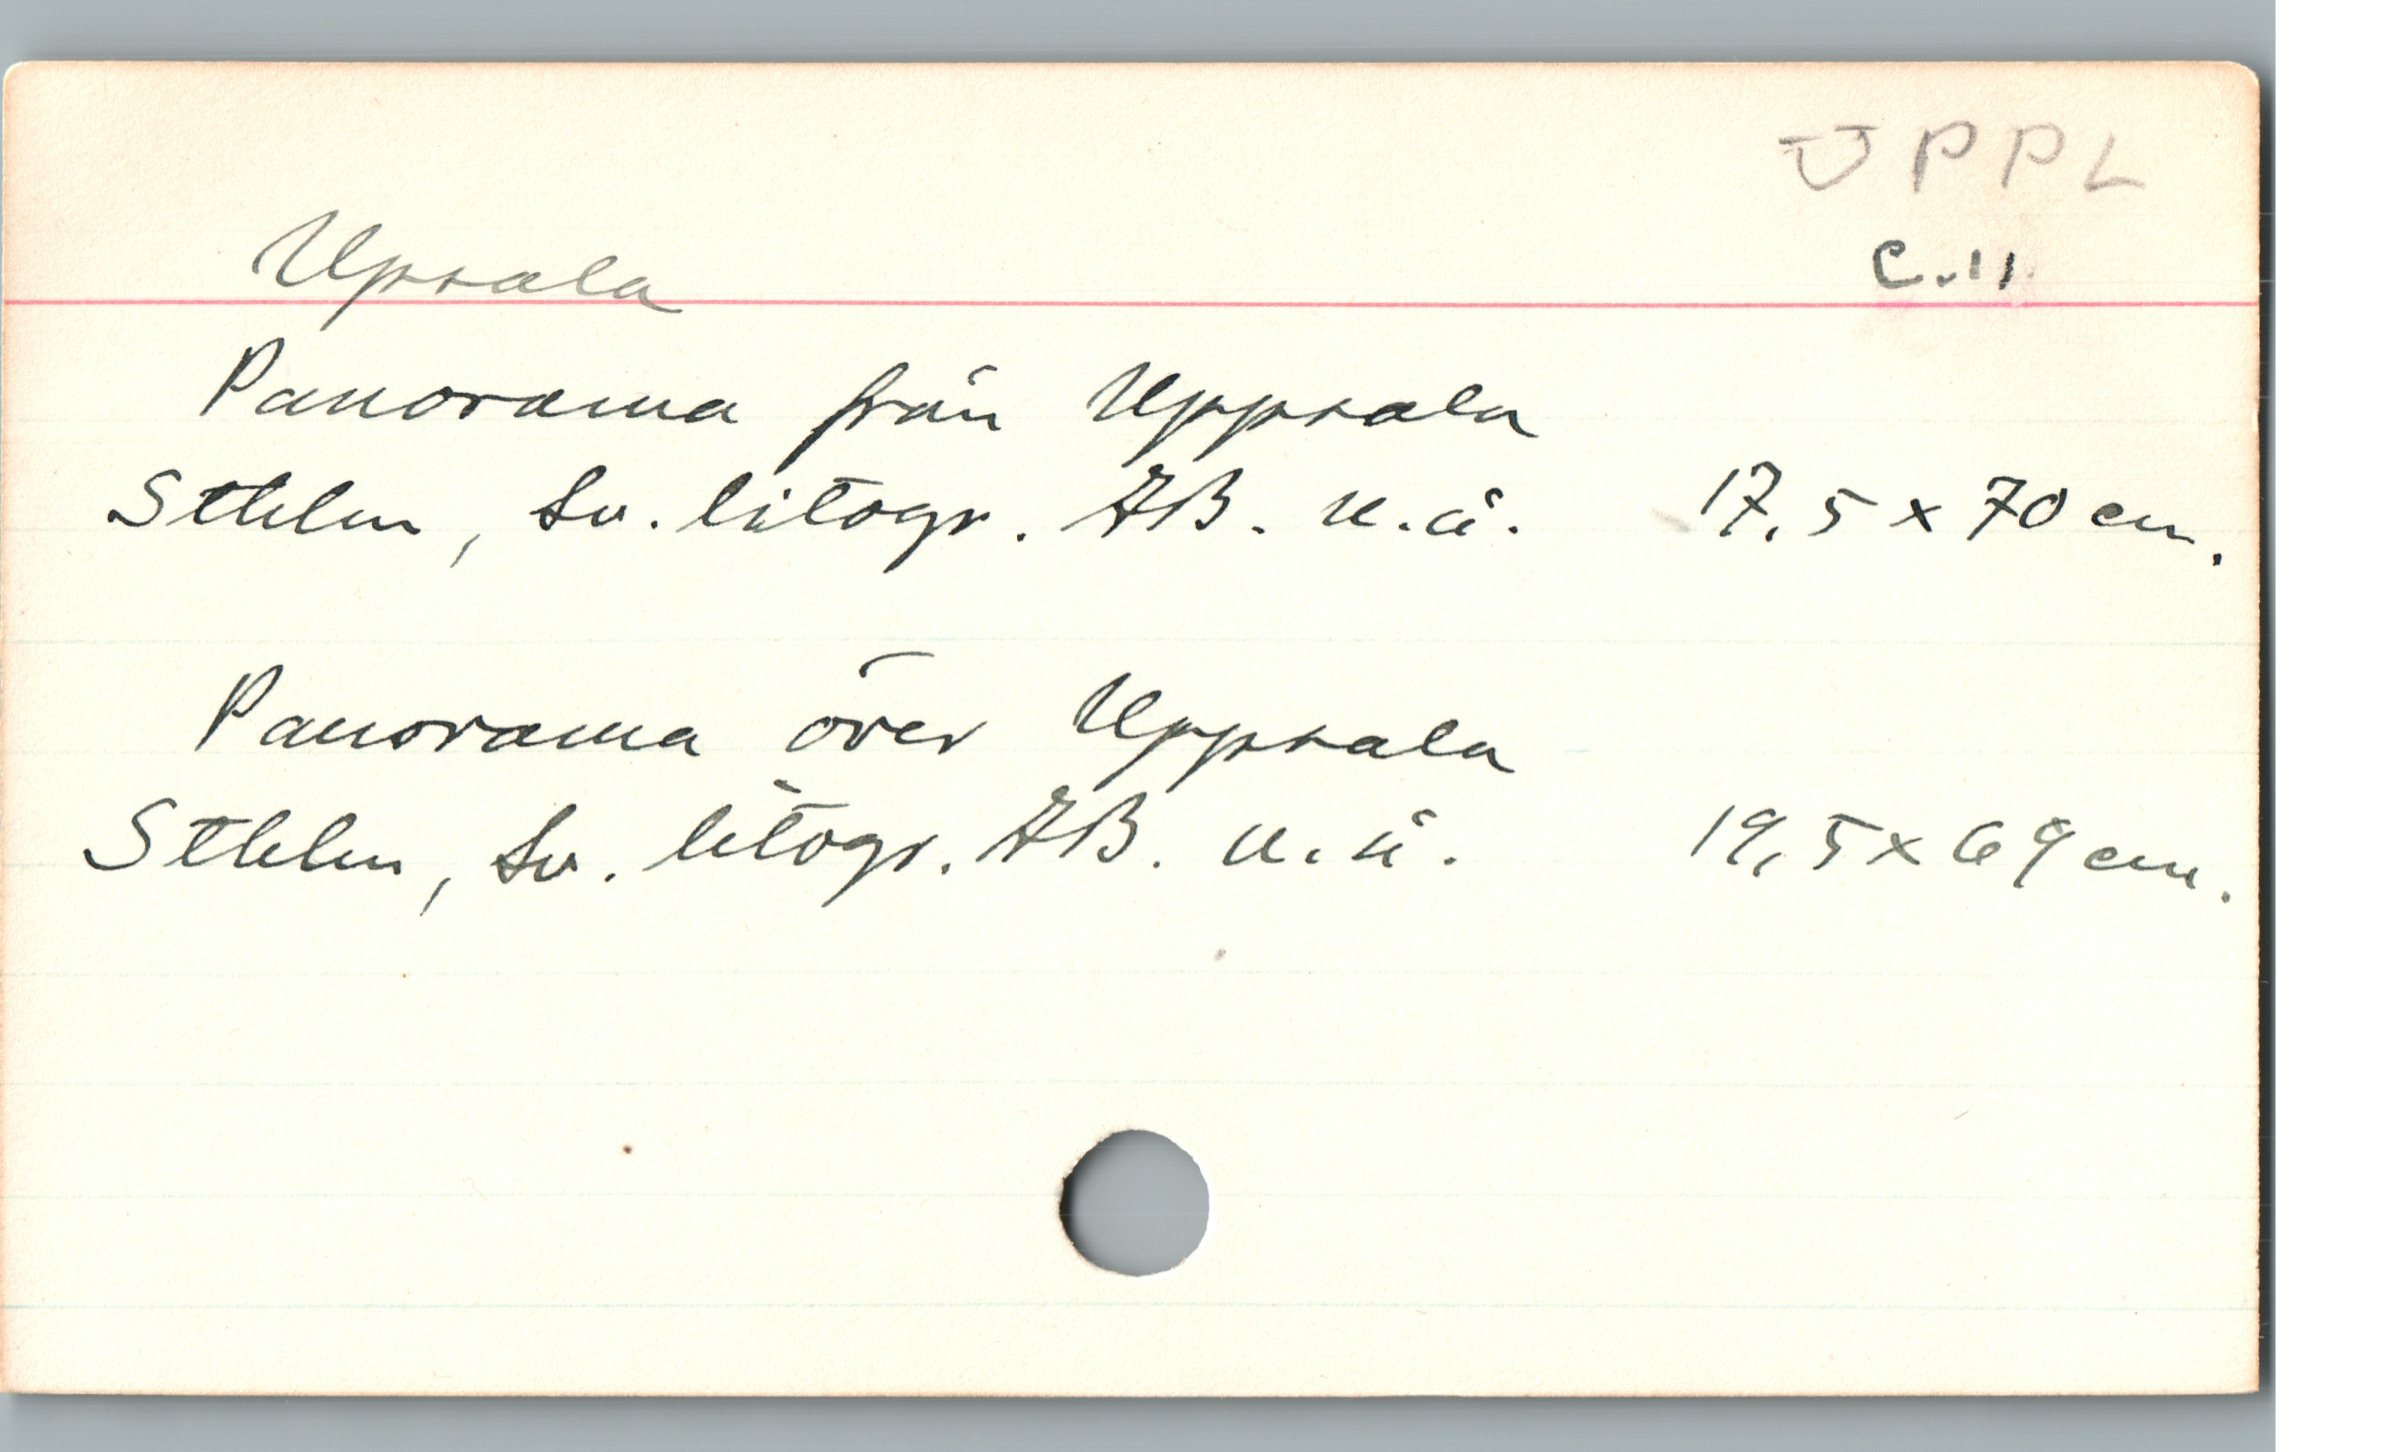 UPPL
C.11
Upsala
Panorama från Uppsala
Sthlm, Sv. litogr. AB. u.å. 17,5 x 70 cm.
Panorama över Uppsala
Sthlm, Sv. litogr. AB. u.å. 19,5 x 69 cm.